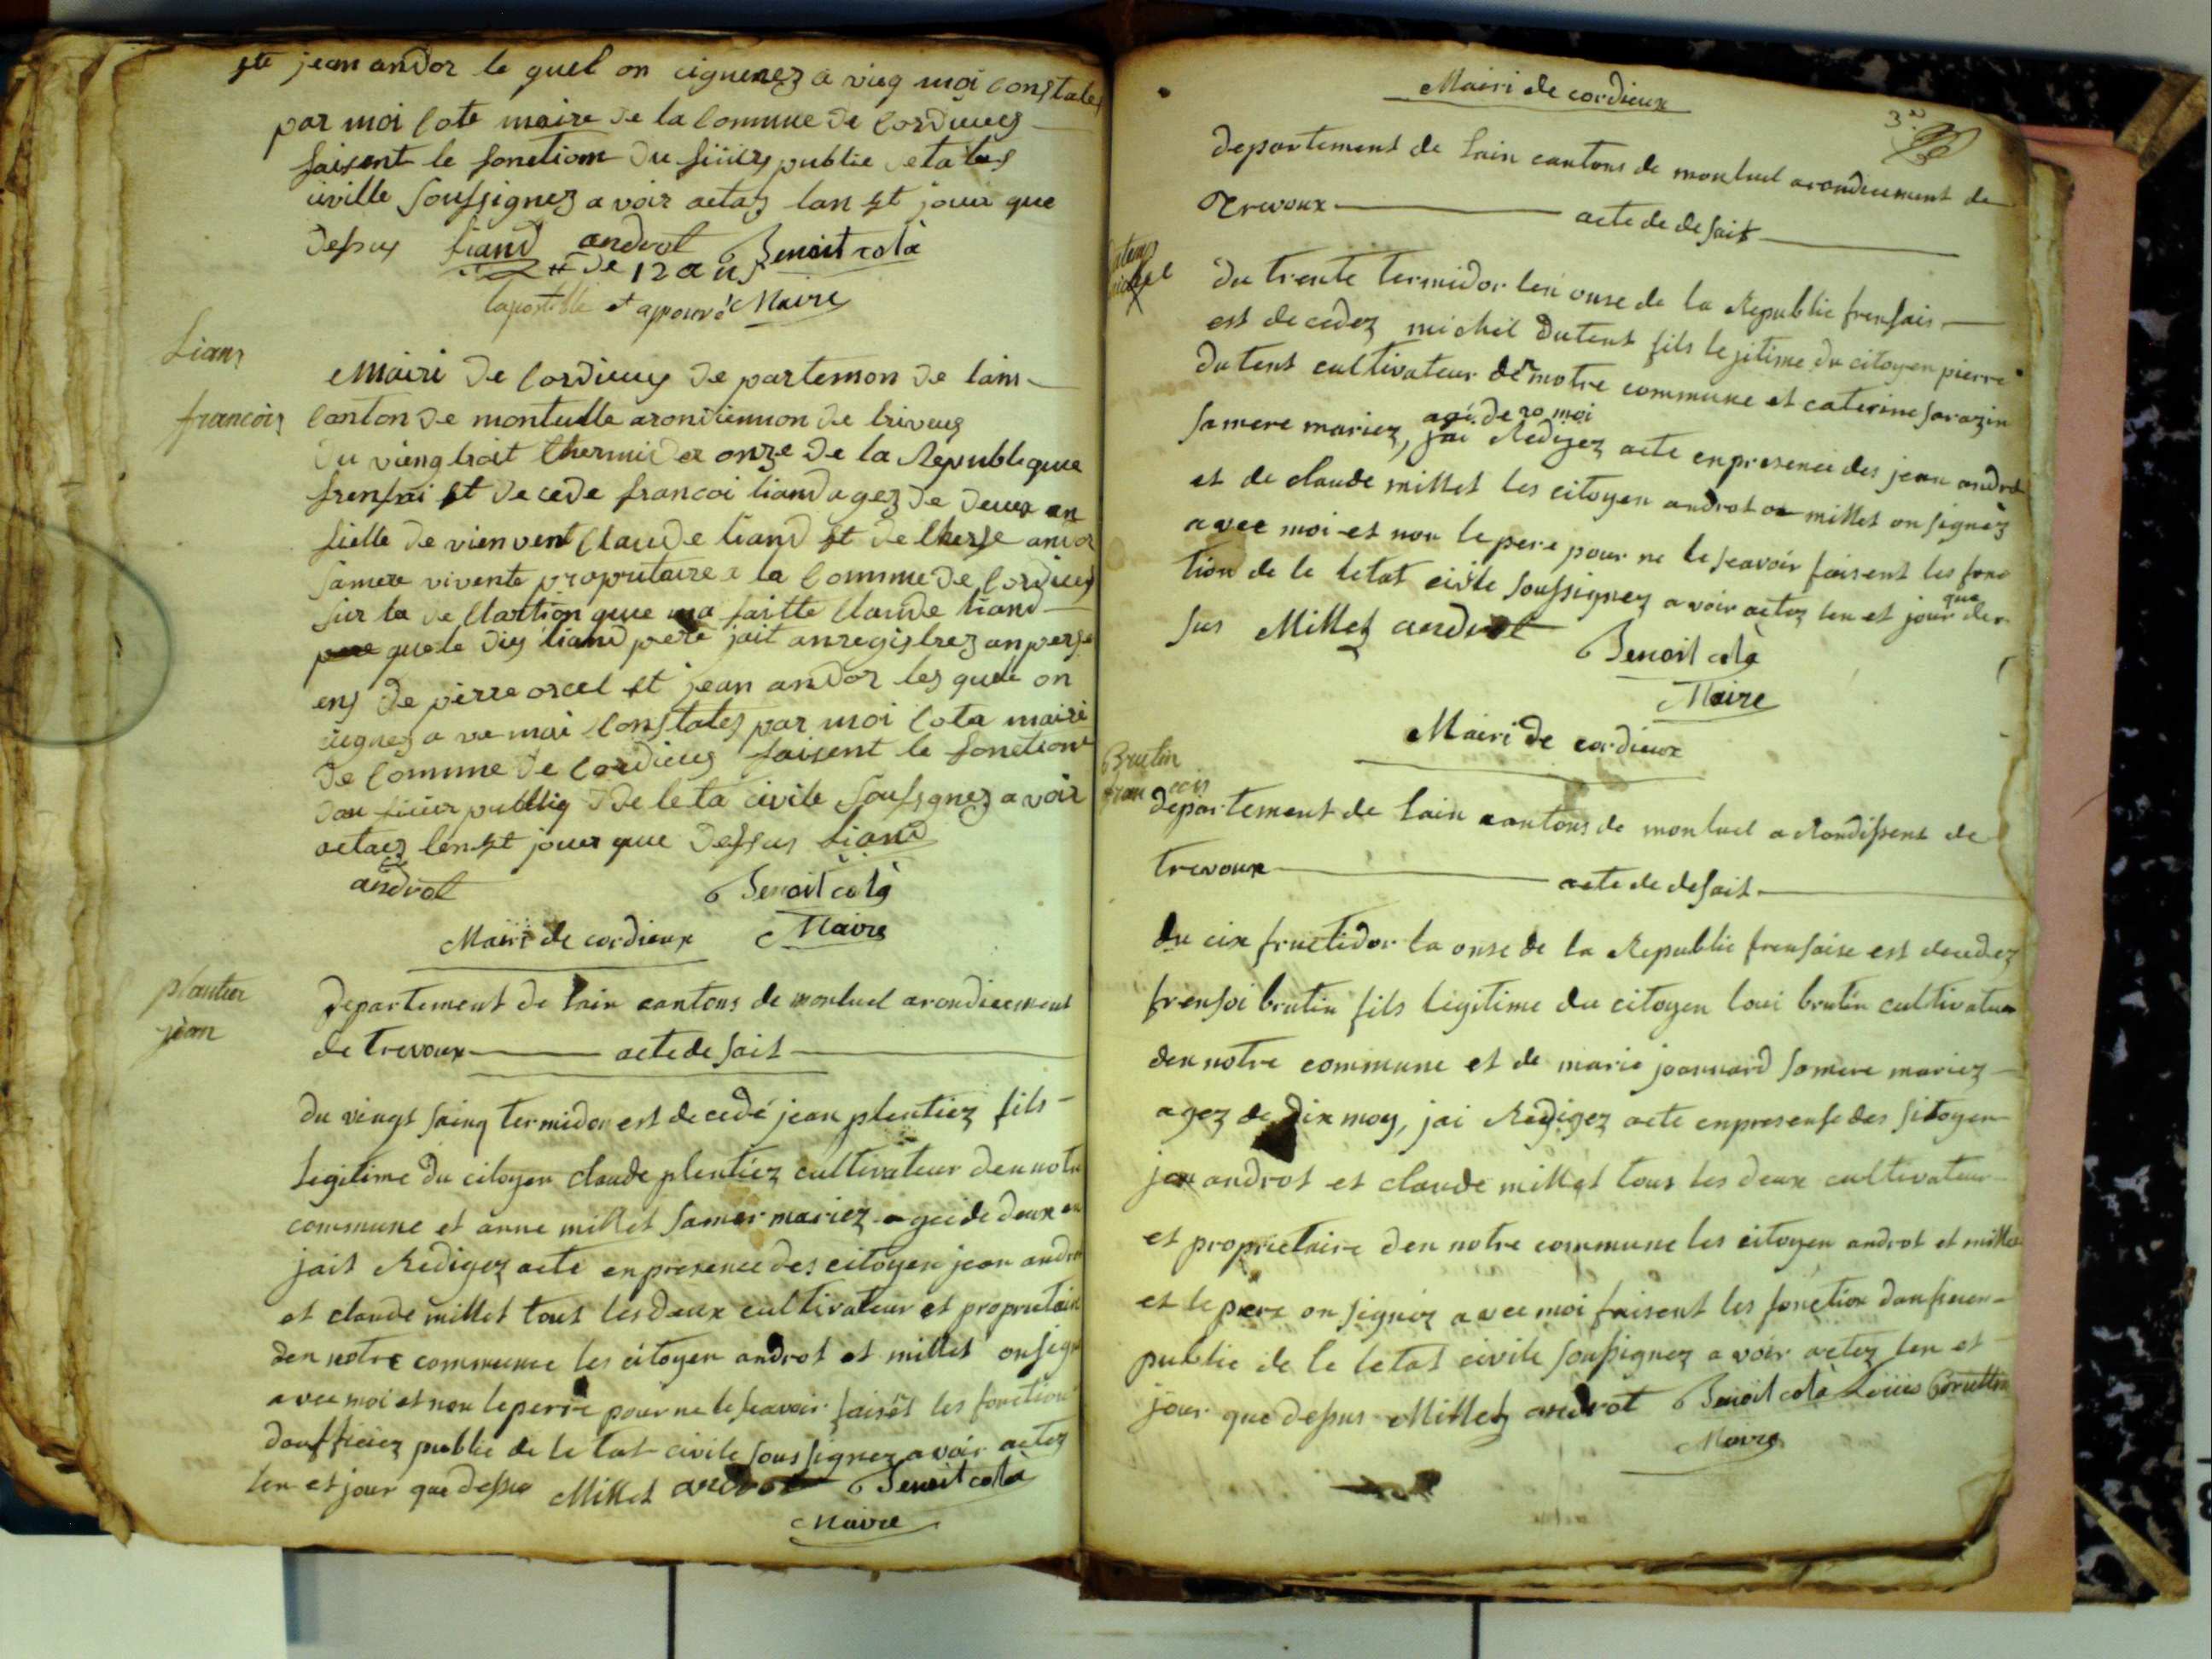 ete jean andor le quel on cignenez a vieq moi constatez
par moi Cota maire de la Commue de Cordieux
faisent le fonetiom du fiiicy publie detatas
civille Soussignez a voir actaz lan et jour que
dessus liand androt Benoit cota
# de 12 an s
lapostille et approuvé Maire
Liam
francois
Mairi de Cordieux de partemon de lain
Canton de montuelle arondiemon de triveux
Du viengtroit thermidor onze de la Republique
frensai et decede francoi liand agez de deux an
fielle de vienvent Claude liand et de therse andor
samere vivente proprutaire a la Comme de Cordieux
sur la de Clartion que ma faitte Claude liand
quele diz liand pere jait anregistrez anperse
ens de pierre orcel et jean andor les quele on
cignez a ve moi Constatez par moi Cota maire
de Comme de Cordieux faisent le fonetion
dou fiiier publliq de leta civile Sousignez a voir
actaez len et jour que dessus liand
androt Benoit cota
Mairi de cordieux Maire
plantier
jean
departement de lain cantons de montuel arondicement
de trevoux acte de sait
du vingt sainq termidor est decedé jean plentiez fils
legitime du citoyen claude plentiez cultivateur den notre
commune et anne millet samer mariez agee de deux an
jait Redigez acte enpresence des citoyen jean androt
et claude millet tout lesdeux cultivateur et proprietaire
den notre commune les citoyen androt et millet on signé
avec moi et non leperre pour ne le scavoir faisêt les fonction
doufficiez public de le tat civile soussignez avoir actez
len et jour que dessus Millet androt Benoit cota
Maire
Mairi de cordieux
3
departement de lain cantons de montuel arondicement de
Trevoux acte de desait
du trente termidor len onse de la Republic frensais
est decedez michel dutent fils lejitime du citoyen pierre
dutent cultivateur de notre commune et caterine sarazin
agé de 20 moi
samere mariez, jai Redigez acte enpresence des jean androt
et de claude millet les citoyen androt et millet on signéz
avec moi et non le pere pour ne le scavoir faisent les fonc
tion de le letat civile soussignez avoir actez len et jour que des
sus Millet androt Benoit cota
Maire
Mairi de cordieux
Brutin
francois
departement de lain cantons de montuel arondissent de
trevoux acte de desait
du cix fructidor la onse de la Republic frensaise est decedez
frensoi brutin fils legitime du citoyen loui brutin cultivateur
den notre commune et de marie joannard samere mariez
agez de dix moy, jai Redigez acte enpresense des sitoyen
jean androt et claude millet tous les deux cultivateur
et proprietaire den notre commune les citoyen androt et millet
et le pere on signéz avec moi faisent les fonction doufficier
public de le letat civile soussignez avoir actez len et
jour que dessus Millet androt Benoit cota Louis Bruttin
Maire